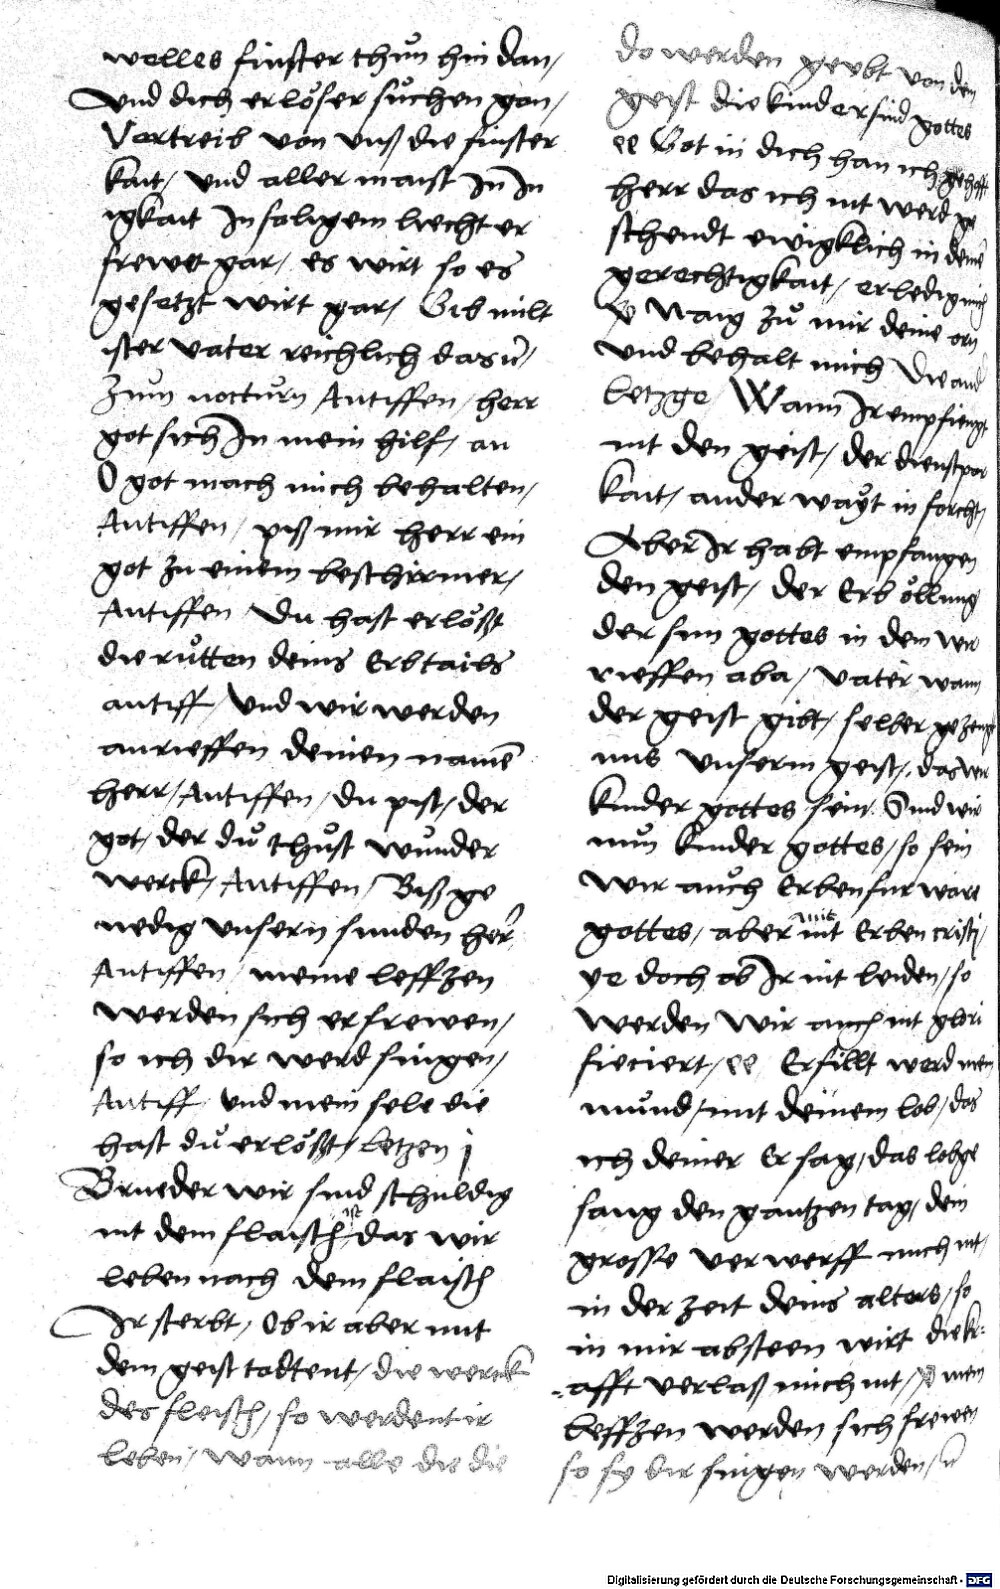 welles finster thůn hin dan /
Vnd dich erlöser sůchen gan /
Vertreib von vnß die finster
kait / vnd aller maist In In
igkait In soligem liecht er
frewet gar / es wirt so es
gesetzt wirt gar / Gib milt
ister vater reichlich das
Zum nocturn Antiffen / herr
got sich In mein hilf / an
O got mach mich behalten /
Antiffen / piß mir herr ein
got zu einem beschirmer /
Antiffen Du hast erlößt
die růtten deins Erbtails
antiff / Vnd wir werden
anrieffen deinen namē
herr / Antiffen / du pist / der
got / der dů thůst wunder
werck / Antiffen / Biß ge
nedig vnsern sunden her
Antiffen / meine leffzen
werden sich erfrewen /
so ich dir werd singen /
Antiff / Vnd mein sele die
hast dů erlößt / Letzen j
Brueder wir sind schuldig
nit dem flaisch / das wir
leben nach dem flaisch
Ir sterbt / Ob ir aber mit
dem geist todtent / die werck
des fleisch / so werdent ir
leben / wann alle die die
do werden geubt von dem
geist die kinder sind gottes
Got in dich han ich gehoft
herr das ich nit werd ge
schendt ewigklich in deine
gerechtigkait / erledig mich
Naig zů mir deine orn
vnd behalt mich Die and
Letzge / Wann Ir empfiengt
nit den geist / der dienstpar
kait / ander wayt in forcht /
Aber Ir habt empfangen
den geist / der Erböllung
der sun gottes in dem wir
rieffen aba / vater wann
der geist gibt / selber gezeug
nus vnserm geist / das wir
kinder gottes sein. Sind wir
nun kinder gottes / so sein
wir auch Erben furware
mit
gottes / aber mit Erben cristi /
ye doch ob Ir mit leiden / so
werden Wir auch mit glori
ficiert / Erfillt werd mein
mund / mit deinem lob / das
ich deiner Er sag / das lobge
sang den gantzen tag / dein
grosse verwerff mich nit /
in der zeit deins alters / so
in mir absteen wirt die kr=
=afft verlaß mich nit / mein
leffzen werden sich frewen
so sy dir singen werden / vn̄
Digitalisierung gefördert durch die Deutsche Forschungsgemeinschaft - DFG